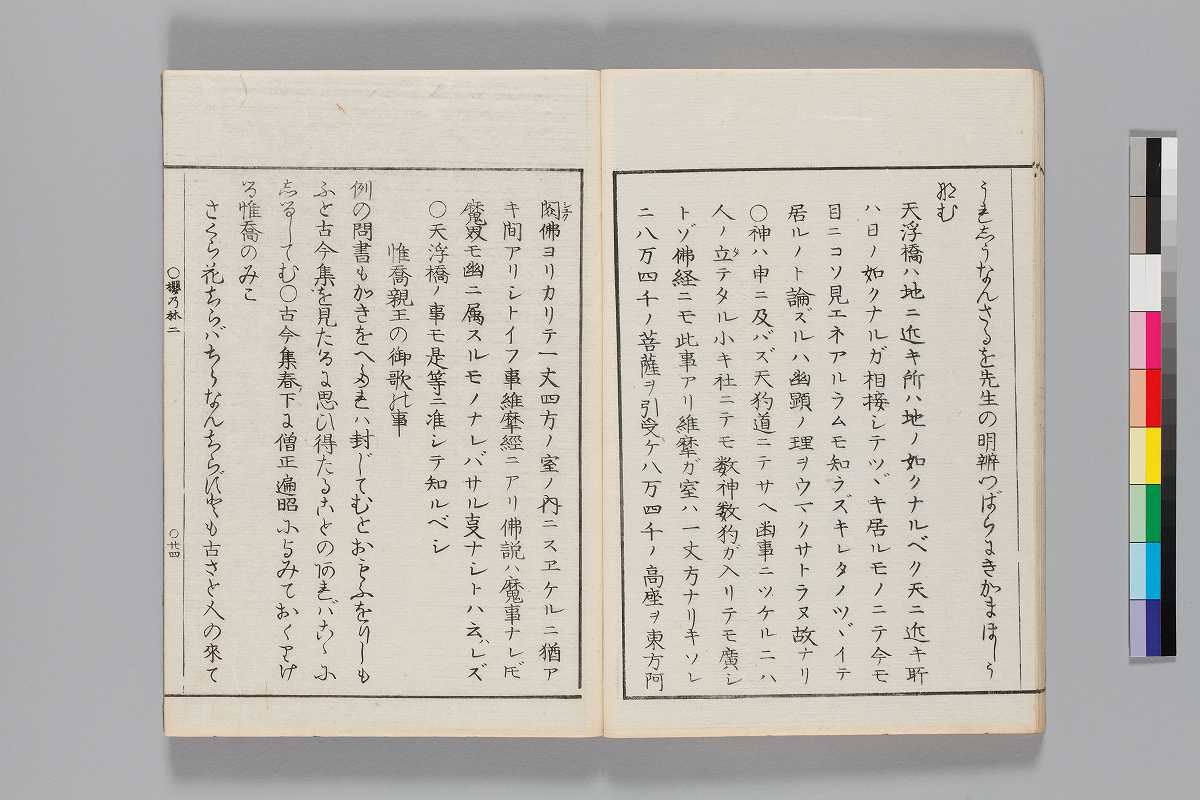 うれしうなんさるを先生の明辨つばらにきかまほしう
れむ
天浮橋ハ地ニ近キ所ハ地ノ如クナルベク天ニ近キ所
ハ日ノ如クナルガ相接シテツヾキ居ルモノニテ今モ
目ニコソ見エネアルラムモ知ラズキレタノツヾイテ
居ルノト論ズルハ幽顕ノ理ヲウマクサトラヌ故ナリ
〇神ハ申ニ及バズ天狗道ニテサヘ幽事ニツケルニハ
人ノ立テタル小キ社ニテモ数神数狗ガ入リテモ廣シ
トゾ佛経ニモ此事アリ維摩ガ室ハ一丈方ナリキソレ
ニ八万四千ノ菩薩ヲ引受ケ八万四千ノ高座ヲ東方阿
閦佛ヨリカリテ一丈四方ノ室ノ内ニスヱケルニ猶ア
キ間アリシトイフ事維摩經ニアリ佛説ハ魔事ナレドモ
魔界モ幽ニ属スルモノナレバサル事ナシトハ云ハレズ
〇天浮橋ノ事モ是等ニ准シテ知ルベシ
惟喬親王の御歌の事
例の問書もかきをへたれハ封じてむとおもふをりしも
ふと古今集を見たるに思ひ得たることのあれバこゝに
しるしてむ〇古今集春下に僧正遍昭によみておくりけ
る惟喬のみこ
さくら花ちらバちらなんちらずとも古さと人の來て
〇櫻乃林二
〇廿四